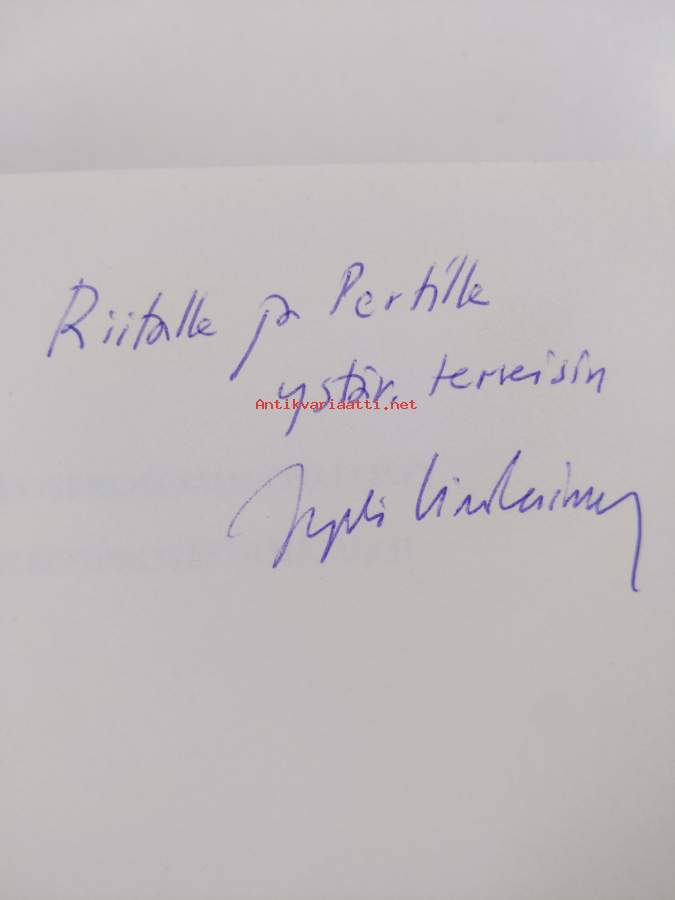 Riitalle ja Pertille
ystäv. terveisin
Antikvariaatti.net